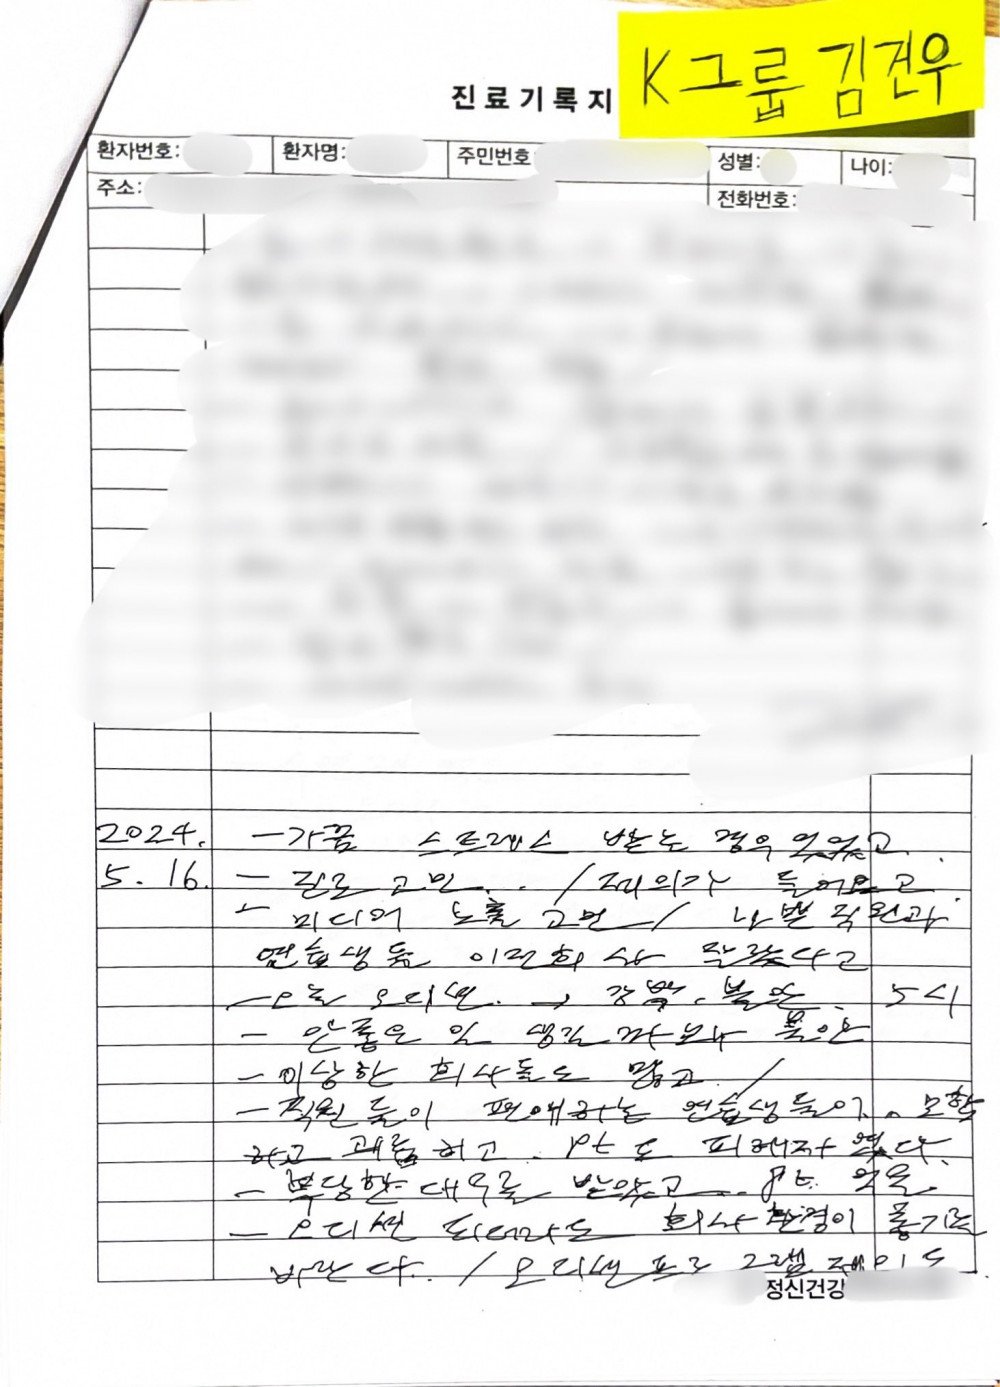 K그룹 김건우
진료기록지
환자번호: 환자명: 주민번호 성별: 나이:
주소: 전화번호:
2024. - 가끔 스트레스 받는 경우 있었고.
5. 16. - 진로 고민.. / 회의가 들어오고
- 미디어 노출 고민 / 나쁜 직원과
연습생들 이전회사 많았다고
- 오늘 오디션. → 강박. 불안. 5시
- 안좋은 일 생길까봐 불안
- 이상한 회사들도 많고. /
- 직원들이 편애하는 연습생들이. 모함
하고 괴롭히고. pt도 피해자였다.
- 부당한 대우를 받았고... pt. 억울.
- 오디션 되더라도 회사 환경이 좋기를
바란다. / 오디션 프로그램
정신건강